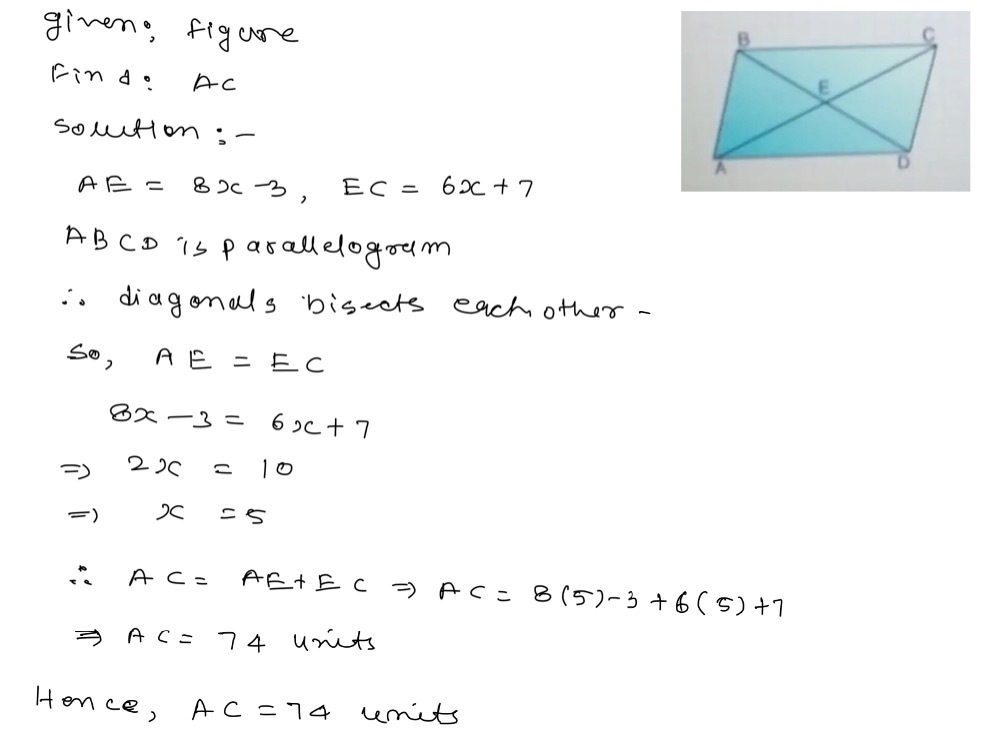 given; figure
Find: AC
solution :-
AE = 8x-3, EC = 6x+7
ABCD is parallelogram
∴ diagonals bisects each other -
So, AE = EC
8x-3 = 6x+7
=> 2x = 10
=> x = 5
∴ AC = AE+EC => AC = 8(5)-3+6(5)+7
=> AC = 74 units
Hence, AC = 74 units
B C
E
A D